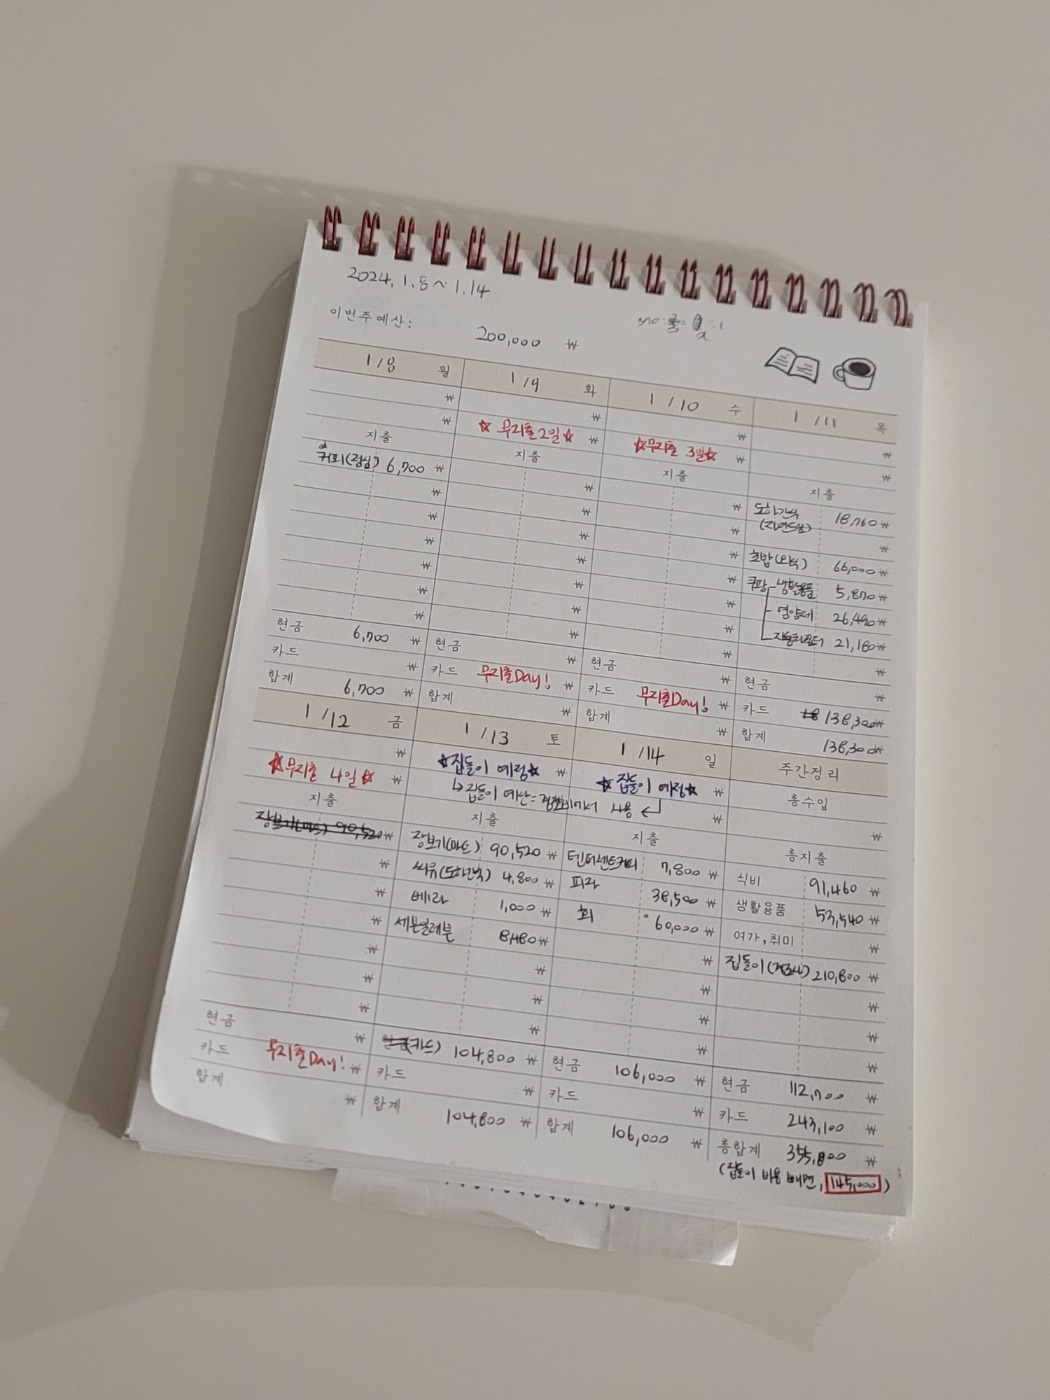 2024. 1. 8 ~ 1.14
이번주예산: 200,000 ₩
1 / 8 월
₩
₩
지출
커피(점심) 6,700 ₩
₩
₩
₩
₩
₩
₩
현금 6,700 ₩
카드 ₩
합계 6,700 ₩
1 / 9 화
₩
☆ 무지출 2일 ☆ ₩
지출
₩
₩
₩
₩
₩
₩
₩
현금 ₩
카드 무지출Day! ₩
합계 ₩
1 / 10 수
₩
☆무지출 3일☆ ₩
지출
₩
₩
₩
₩
₩
₩
₩
현금 ₩
카드 무지출Day! ₩
합계 ₩
1 / 11 목
₩
₩
지출
18,760 ₩
₩
초밥 66,000 ₩
쿠팡 - 생활용품 5,870 ₩
- 영양제 26,490 ₩
21,180 ₩
₩
현금 ₩
카드 138,300 ₩
합계 138,300 ₩
1 / 12 금
₩
☆무지출 4일☆ ₩
지출
장보기(마트) 90,520 ₩
₩
₩
₩
₩
₩
₩
현금 ₩
카드 무지출Day! ₩
합계 ₩
1 / 13 토
☆집들이 예정☆ ₩
↳ 집들이 예산 = 사용 ↲
지출
장보기(마트) 90,520 ₩
씨유 4,800 ₩
베라 1,000 ₩
세븐일레븐 8,480 ₩
₩
₩
₩
(카드) 104,800 ₩
카드 ₩
합계 104,800 ₩
1 / 14 일
☆ 집들이 예정☆ ₩
₩
지출
텐퍼센트커피 7,800 ₩
피자 38,500 ₩
회 60,000 ₩
₩
₩
₩
₩
현금 106,000 ₩
카드 ₩
합계 106,000 ₩
주간정리
총수입
₩
총지출
식비 91,460 ₩
생활용품 53,540 ₩
여가, 취미 ₩
집들이 210,800 ₩
₩
₩
₩
현금 112,700 ₩
카드 243,100 ₩
총합계 355,800 ₩
(집들이 비용 빼면, 145,000)